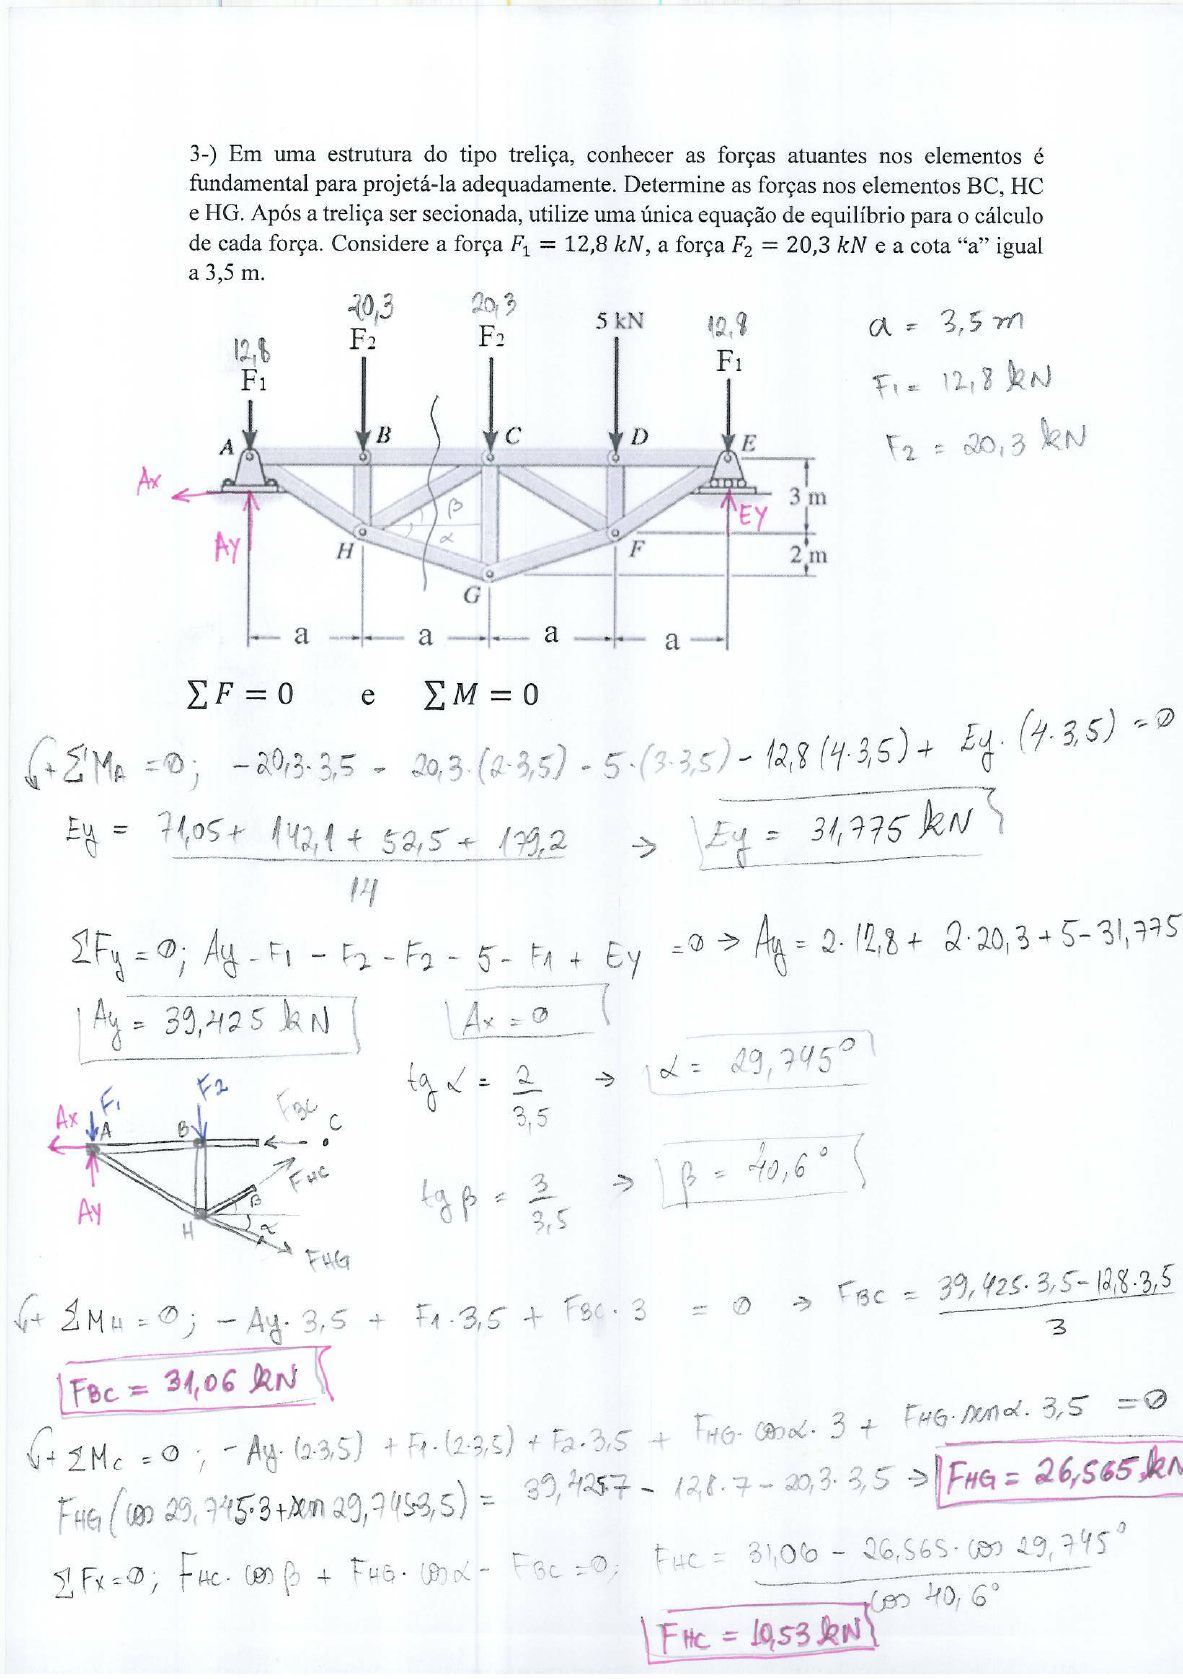 3-) Em uma estrutura do tipo treliça, conhecer as forças atuantes nos elementos é
fundamental para projetá-la adequadamente. Determine as forças nos elementos BC, HC
e HG. Após a treliça ser secionada, utilize uma única equação de equilíbrio para o cálculo
de cada força. Considere a força F₁ = 12,8 kN, a força F₂ = 20,3 kN e a cota “a” igual
a 3,5 m.
20,3 20,3
12,8 F₂ F₂ 5 kN 12,8
F₁ F₁
a = 3,5 m
F₁ = 12,8 kN
F₂ = 20,3 kN
A B C D E
Ax
3 m
β
Ay α Ey
H F
2 m
G
a a a a
∑F = 0 e ∑M = 0
+ ΣMA = 0; -20,3·3,5 - 20,3·(2·3,5) - 5·(3·3,5) - 12,8(4·3,5) + Ey·(4·3,5) = 0
Ey = 71,05 + 142,1 + 52,5 + 179,2 → Ey = 31,775 kN
14
ΣFy = 0; Ay - F1 - F2 - F2 - 5 - F1 + Ey = 0 → Ay = 2·12,8 + 2·20,3 + 5 - 31,775
Ay = 39,425 kN Ax = 0
tg α = 2/3,5 → α = 29,745°
Ax F1 F2 FBC
A B C
FHC
tg β = 3/3,5 → β = 40,6°
Ay H β α
FHG
+ ΣMH = 0; -Ay·3,5 + F1·3,5 + FBC·3 = 0 → FBC = 39,425·3,5-12,8·3,5
3
FBC = 31,06 kN
+ ΣMC = 0; -Ay·(2·3,5) + F1·(2·3,5) + F2·3,5 + FHG·cosα·3 + FHG·senα·3,5 = 0
FHG(cos 29,745·3+sen 29,745·3,5) = 39,425·7 - 12,8·7 - 20,3·3,5 → FHG = 26,565 kN
ΣFx = 0; FHC·cos β + FHG·cos α - FBC = 0; FHC = 31,06 - 26,565·cos 29,745°
cos 40,6°
FHC = 10,53 kN